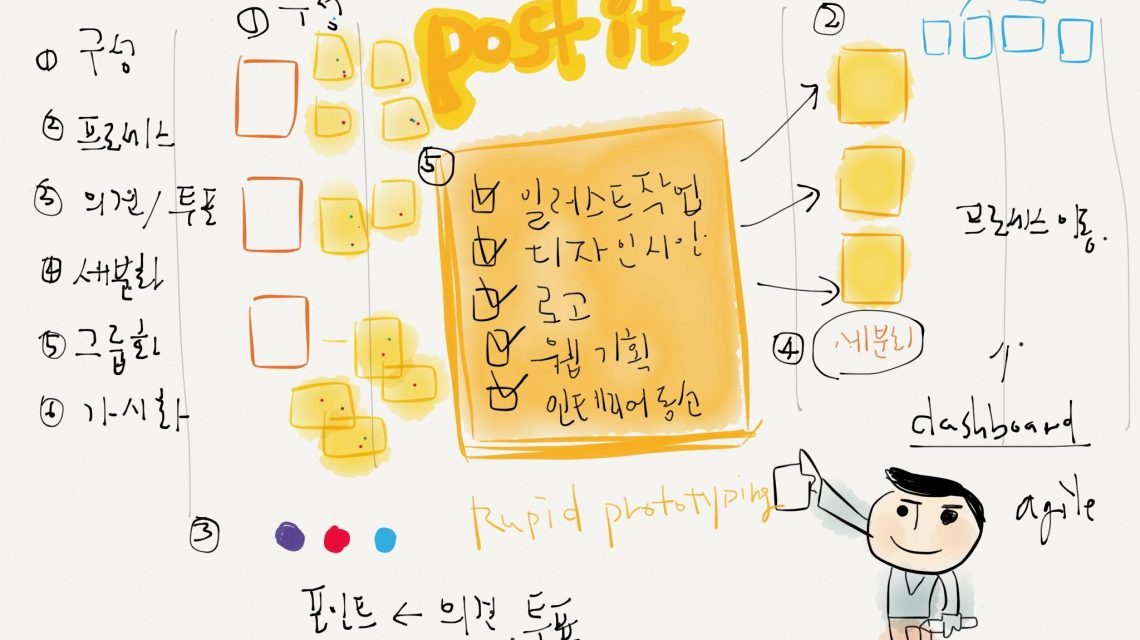 ① 구성
② 프로세스
③ 의견/투표
④ 세분화
⑤ 그룹화
⑥ 가시화
① 구성
post it
⑤
일러스트작업
디자인시안
로고
웹 기획
인테리어동선
②
프로세스이동.
④ 세분화
dashboard
agile
Rupid prototyping
③
포인트 ← 의견, 투표